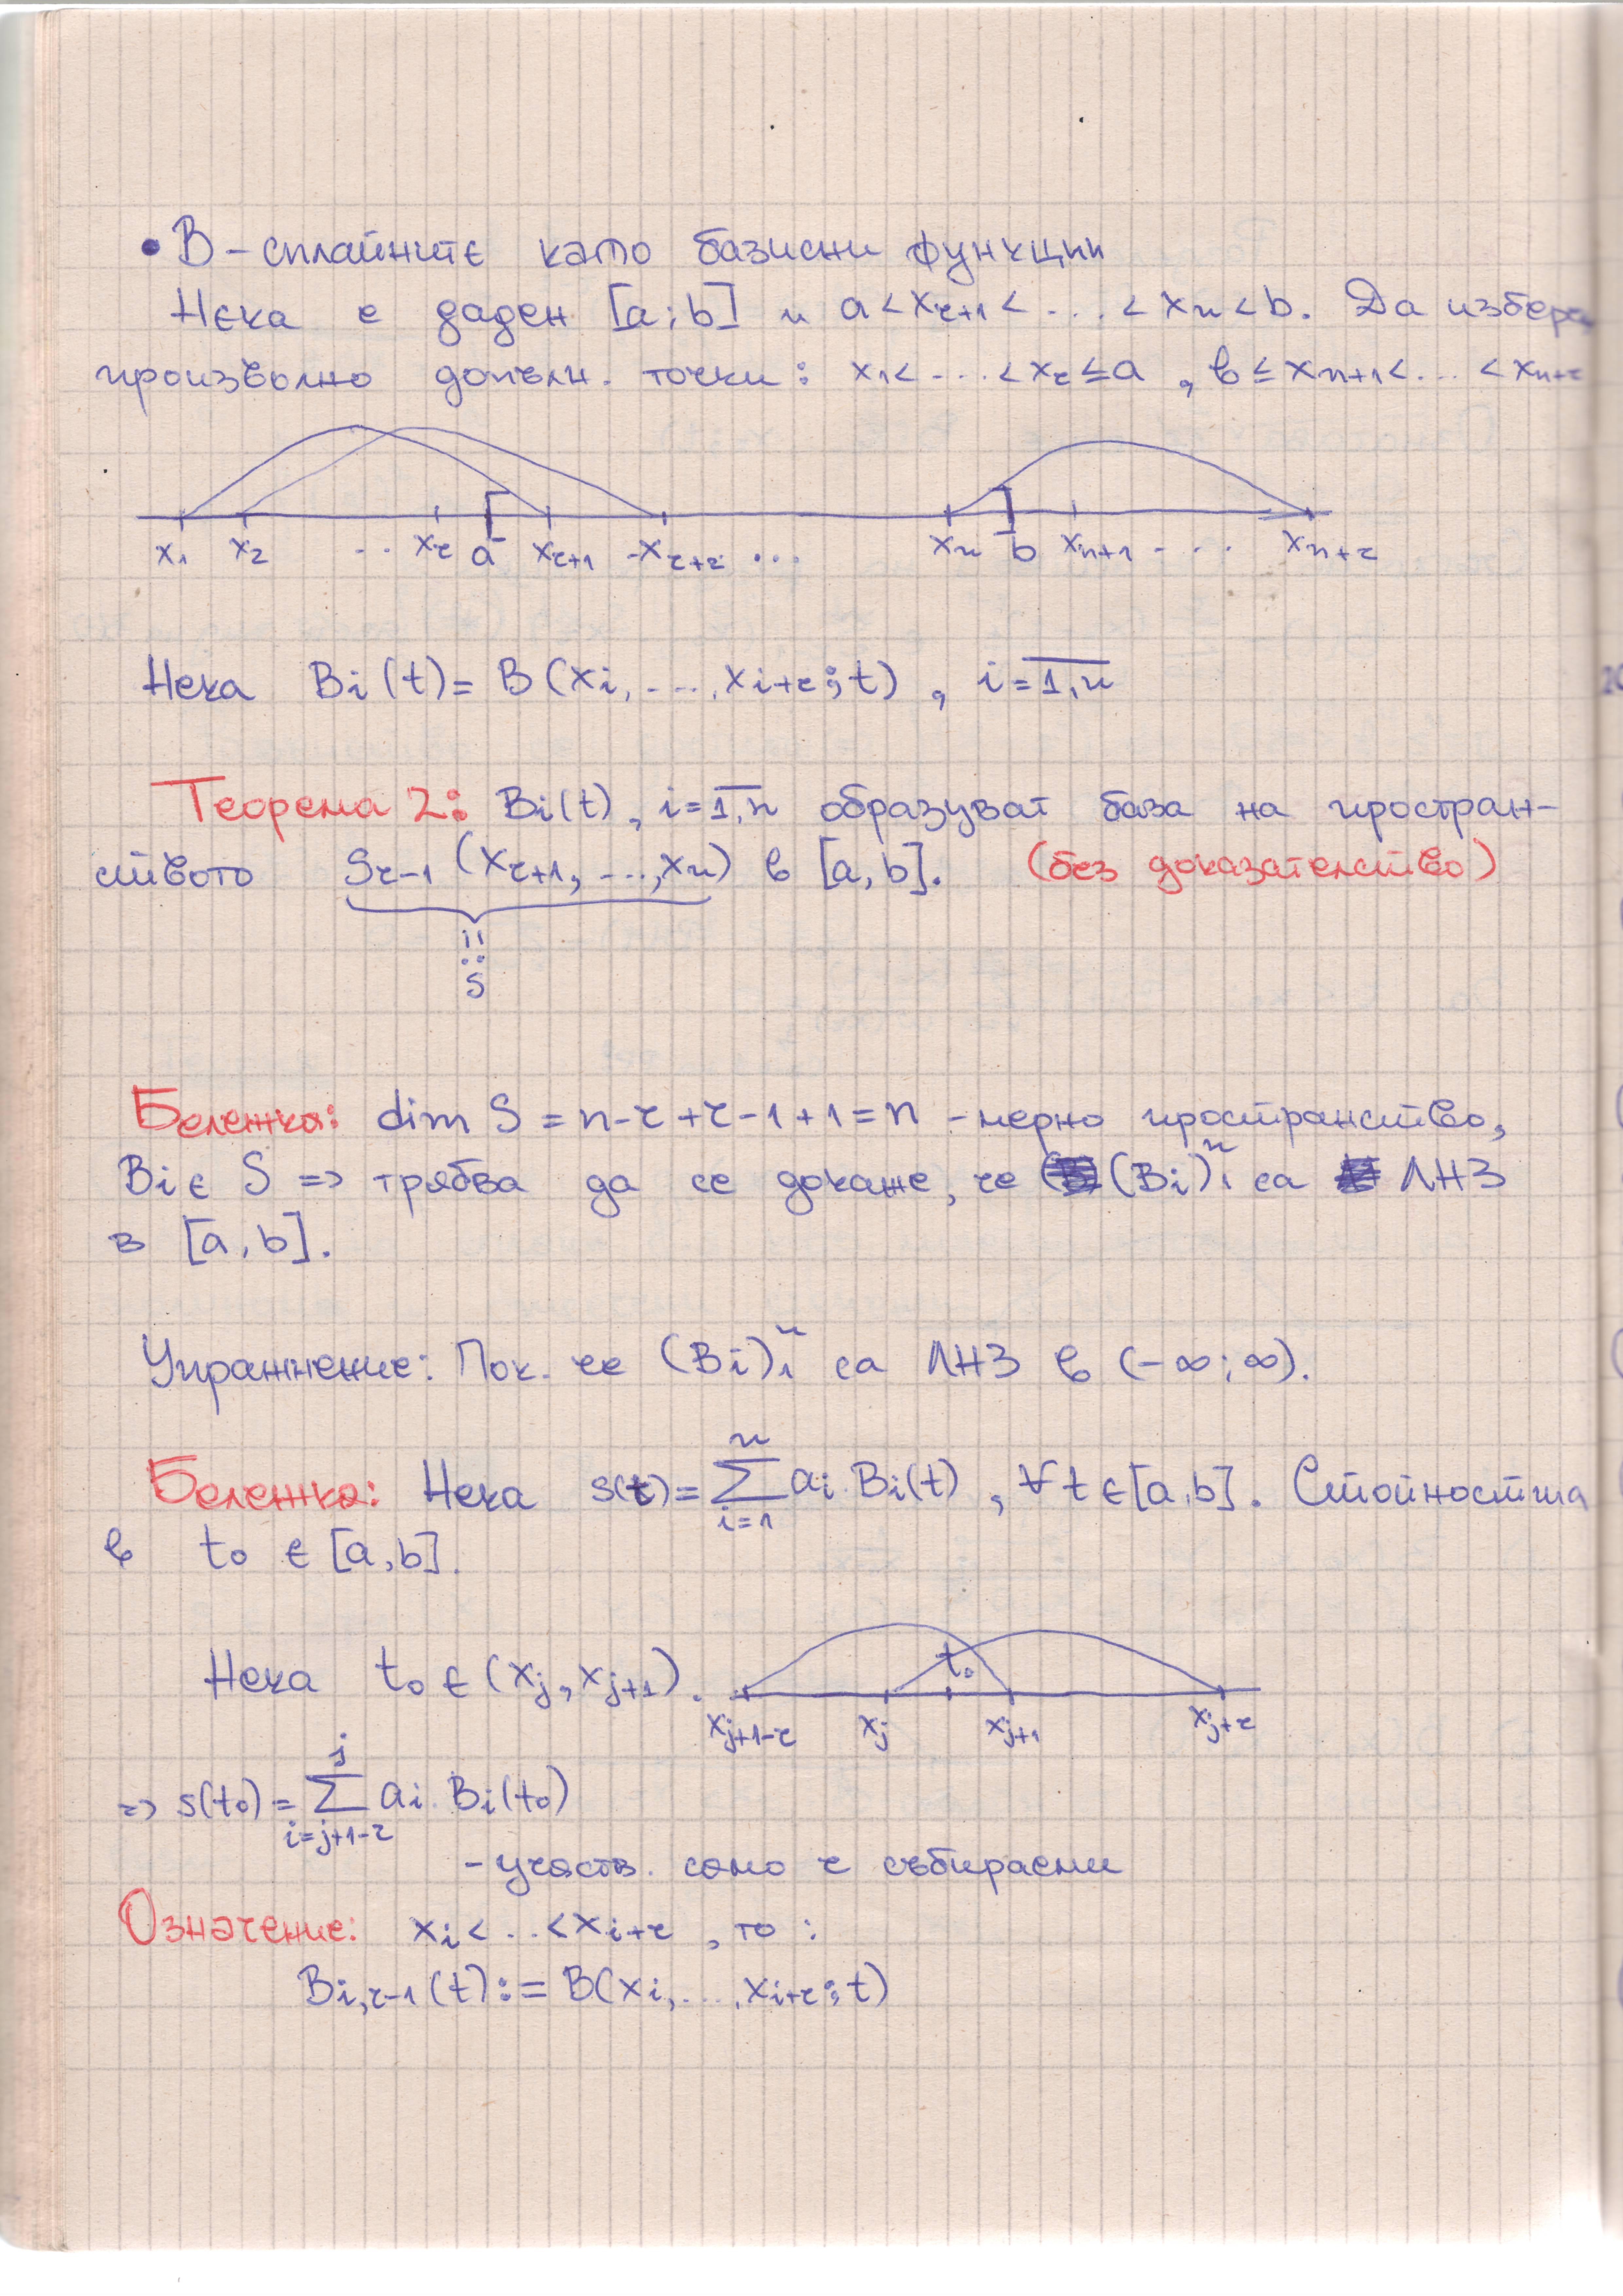 • B-сплайните като базисни функции
Нека е даден [a; b] и a < x_{r+1} < ... < x_n < b. Да избере
произволно допълн. точки: x_1 < ... < x_r ≤ a, b ≤ x_{n+1} < ... < x_{n+r}
x_1 x_2 .. x_r a x_{r+1} x_{r+2} ... x_n b x_{n+1} - ... x_{n+r}
Нека B_i(t) = B(x_i, ..., x_{i+r}; t), i = \overline{1,n}
Теорема 2: B_i(t), i = \overline{1,n} образуват база на простран-
ството S_{r-1}(x_{r+1}, ..., x_n) в [a, b]. (без доказателство)
S
Бележка: dim S = n-r+r-1+1 = n -мерно пространство,
B_i ∈ S => трябва да се докаже, че (B_i)_1^n са ЛНЗ
в [a, b].
Упражнение: Пок. че (B_i)_1^n са ЛНЗ в (-∞; ∞).
Бележка: Нека s(t) = \sum_{i=1}^{n} a_i B_i(t), ∀ t ∈ [a, b]. Стойността
в t_0 ∈ [a, b].
Нека t_0 ∈ (x_j, x_{j+1}).
t_0
x_{j+1-r} x_j x_{j+1} x_{j+r}
=> s(t_0) = \sum_{i=j+1-r}^{j} a_i B_i(t_0)
- участв. само r събираеми
Означение: x_i < ... < x_{i+r}, то:
B_{i,r-1}(t) := B(x_i, ..., x_{i+r}; t)